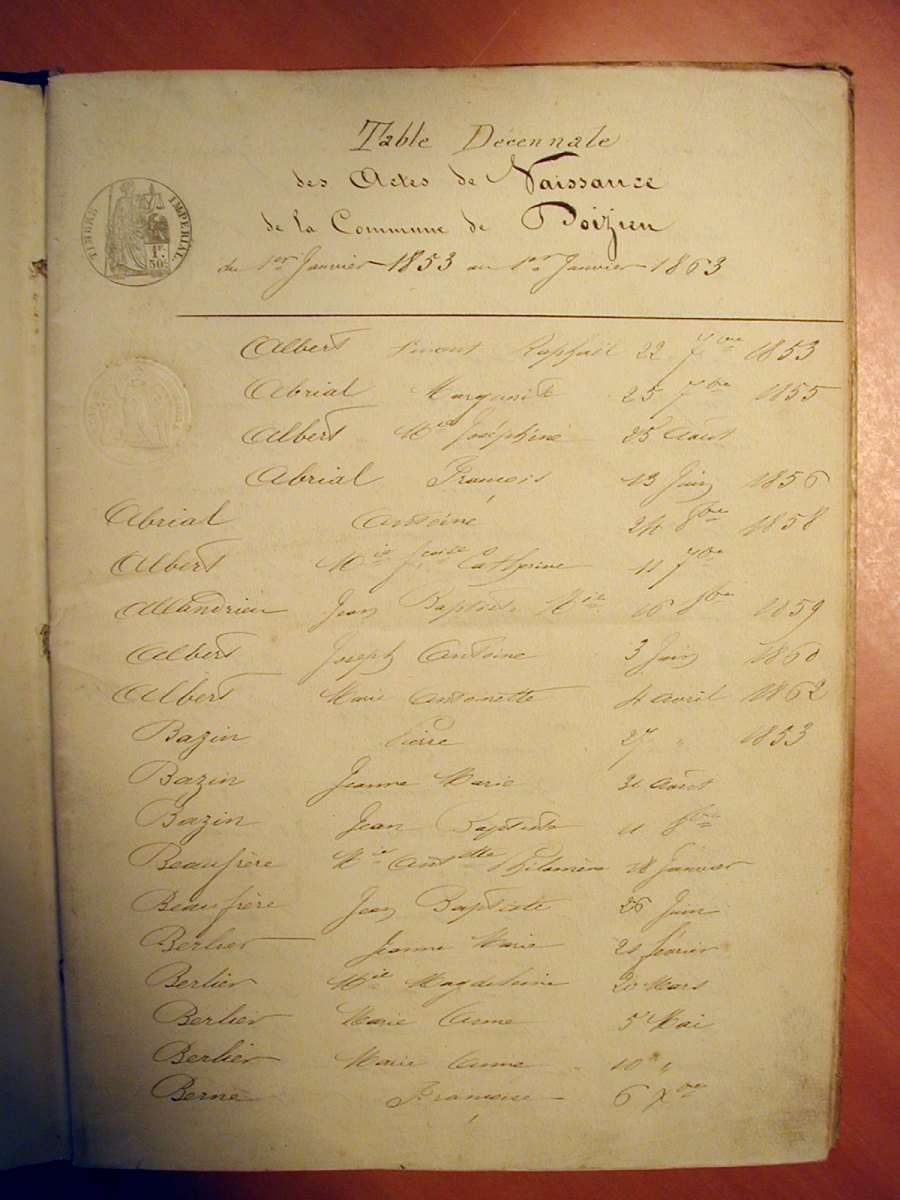 Table Décennale
des Actes de Naissance
de la Commune de Doizieu
du 1er Janvier 1853 au 1er Janvier 1863
TIMBRE IMPÉRIAL
1F. 50c.
Albert Vincent Raphaël 22 7bre 1853
Abrial Marguerite 25 7bre 1855
Albert Mie Joséphine 25 Août
Abrial François 13 Juin 1856
Abrial Antoine 24 8bre 1858
Albert Mie Catherine 11 7bre
Allandrieu Jean Baptiste Mie 16 8bre 1859
Albert Joseph Antoine 3 Juin 1860
Albert Marie Antoinette 4 avril 1862
Bazin Pierre 27 " 1853
Bazin Jeanne Marie 31 Août
Bazin Jean Baptiste 11 8bre
Beaufrère Mie Anttte Philomène 18 Janvier
Beaufrère Jean Baptiste 26 Juin
Berlier Jeanne Marie 21 février
Berlier Mie Magdeleine 20 Mars
Berlier Marie Anne 5 Mai
Berlier Marie Anne 10 "
Berne Françoise 6 Xbre